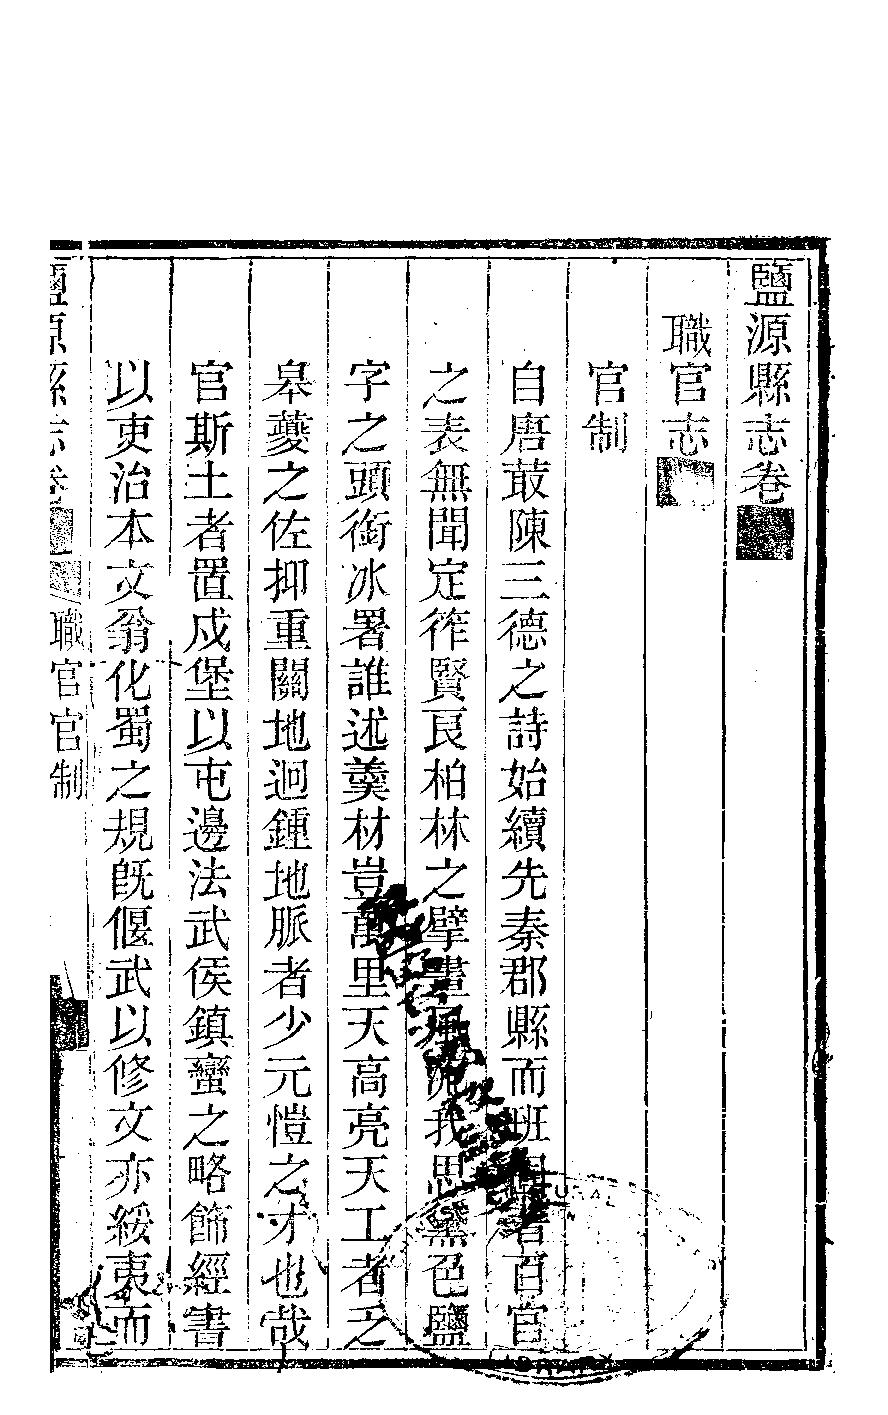 鹽源縣志卷
職官志
官制
自唐蒙陳三德之詩始續先秦郡縣而班 者百官
之表無聞定筰賢良柏林之擘畫 我思黛色鹽
字之頭銜冰署誰述羹材豈萬里天高亮天工者乏
皋夔之佐抑重關地迥鍾地脈者少元愷之才也哉
官斯土者置戍堡以屯邊法武侯鎮蠻之略飾經書
以吏治本文翁化蜀之規旣偃武以修文亦綏夷而
鹽源縣志卷 職官官制